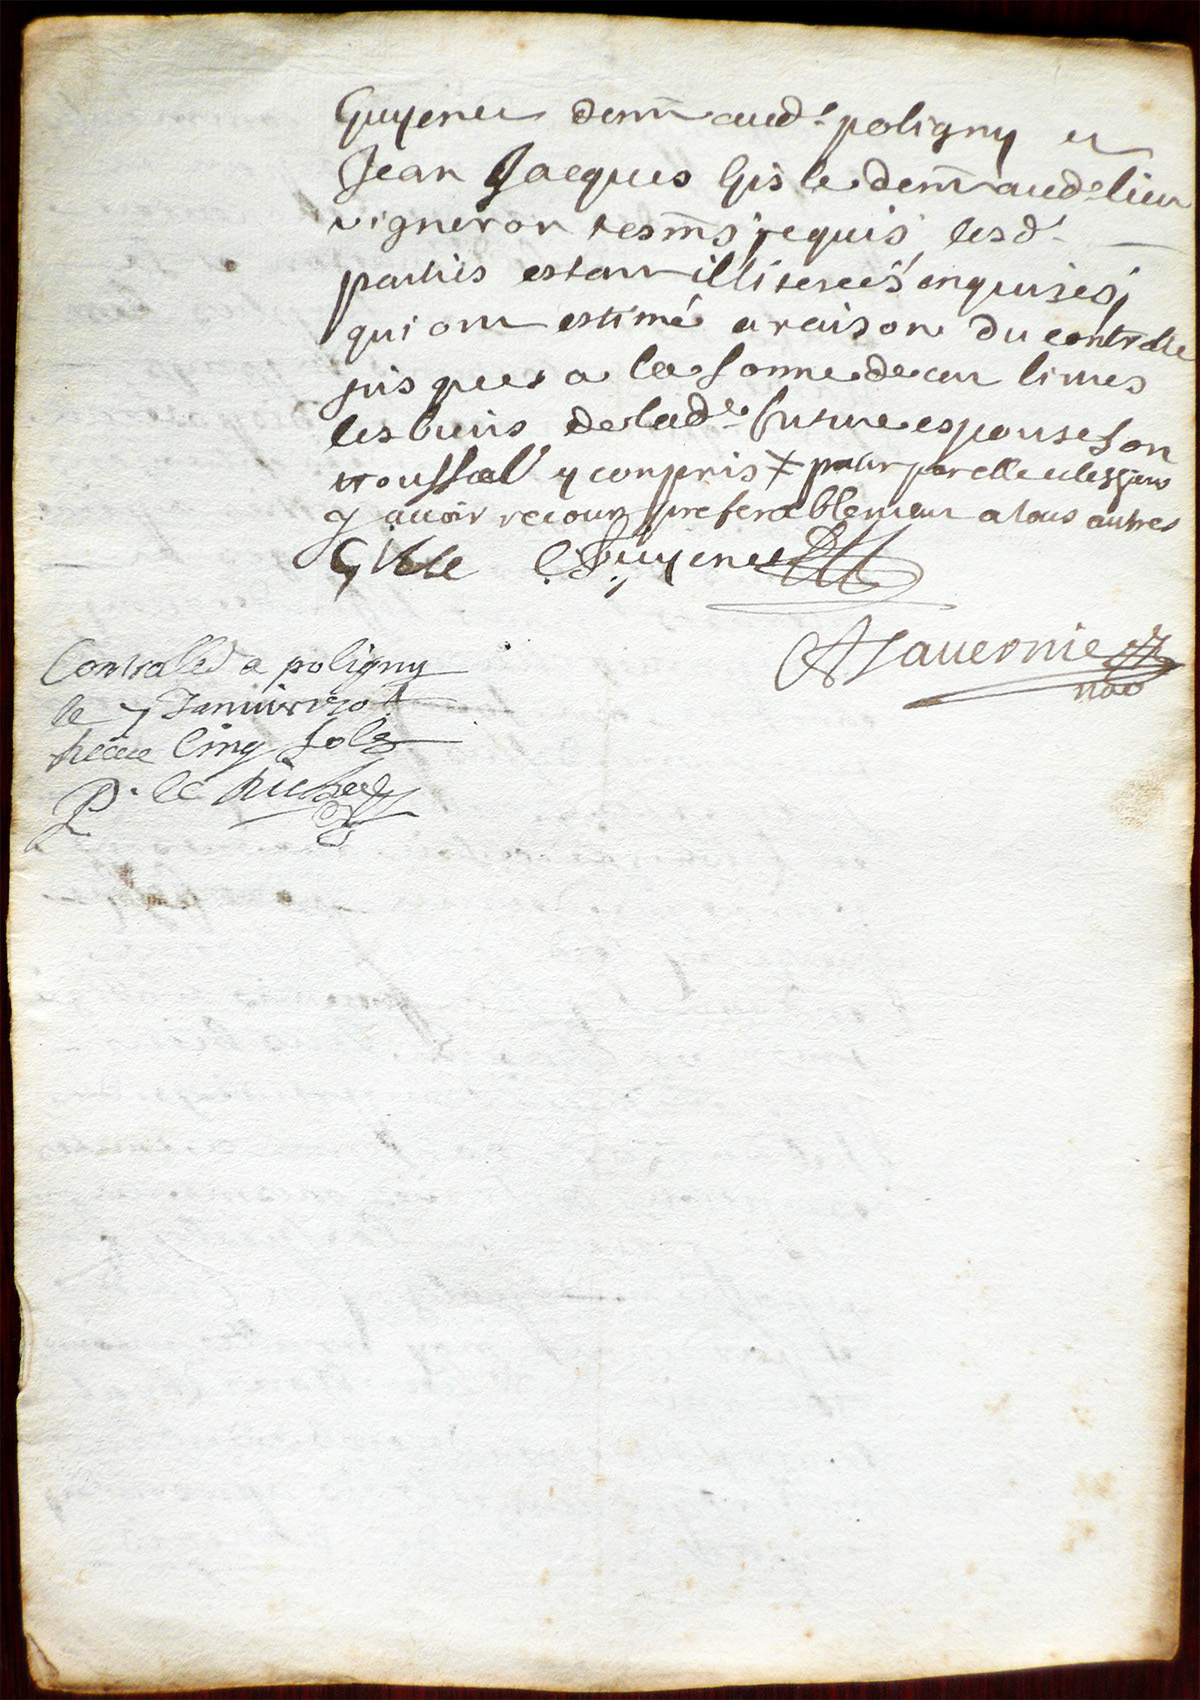 Guyenet dem̄ aud.t poligny et
Jean Jacques Gisle dem̄ aud.t lieu
vigneron tesm̄s requis lesd.
parties estant illiterees enquises,
qui ont estimé a raison du controlle
jusques a la somme de cent livres
les biens de lad.e future espouse son
troussel y compris ⨯ pour par elle et les siens
y avoir recour preferablement a tous autres
Gisle CF Guyenet
A Tavernie
not
Controlled a poligny
le 7 Janvier 1704
Receu Cinq Sols
P.